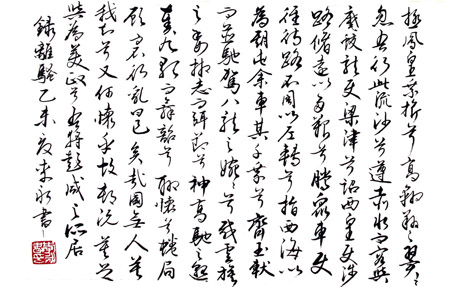 極鳳皇旂兮高翱翔之翼々
忽吾行此流沙兮遵赤水而容與
麾蛟龍使梁津兮詔西皇使涉
路脩遠以多艱兮騰眾車使
徑待路不周以左轉兮指西海以
為期屯余車其千乘兮齊玉軑
而並馳駕八龍之婉々兮載雲旗
之委抑志而弭節兮神高馳之邈
奏九歌而舞韶兮聊懷兮蜷局
顧而不行亂曰已矣哉國無人莫
我知兮又何懷乎故都既莫足
與為美政兮吾將從彭咸之所居
錄離騷乙未夏永書